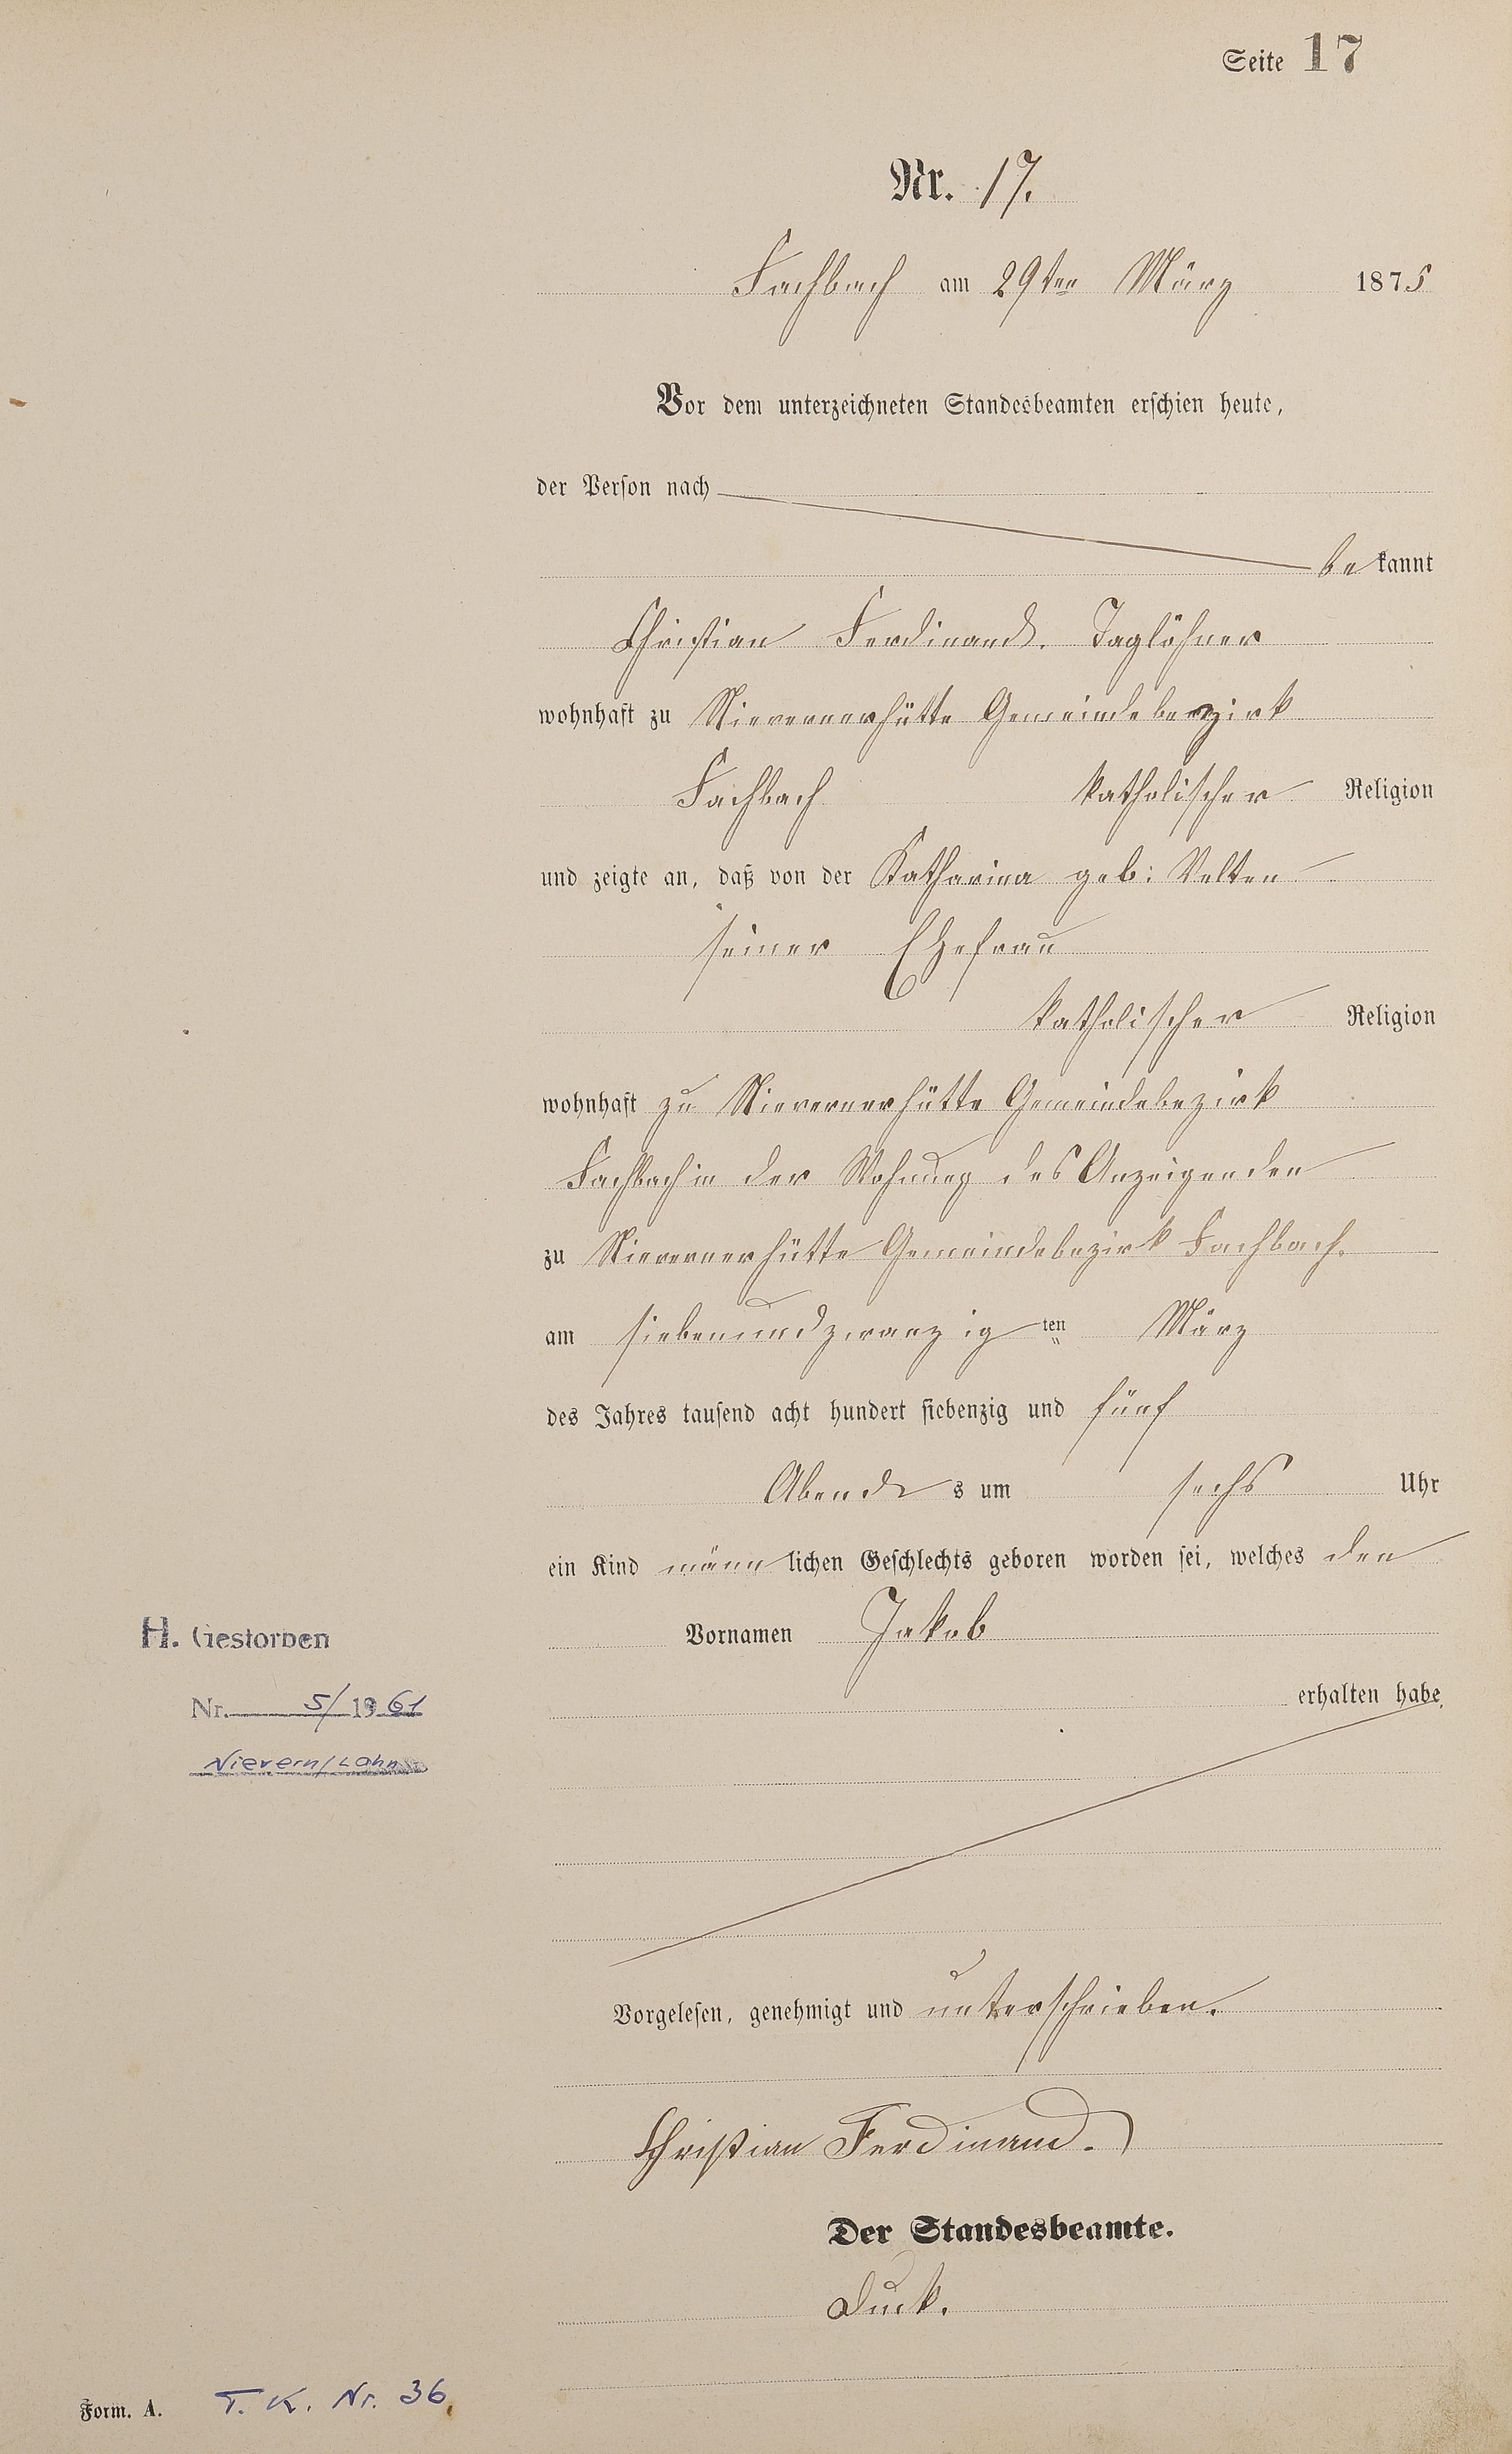 Seite 17
Nr. 17.
Fachbach am 29ten März 1875
Vor dem unterzeichneten Standesbeamten erschien heute,
der Person nach
bekannt
Christian Ferdinand. Taglöhner
wohnhaft zu Nievernerhütte Gemeindebezirk
Fachbach katholischer Religion
und zeigte an, daß von der Katharina geb: Velten
seiner Ehefrau
katholischer Religion
wohnhaft zu Nievernerhütte Gemeindebezirk
Fachbach in der Wohnung des Anzeigenden
zu Nievernerhütte Gemeindebezirk Fachbach.
am siebenundzwanzig ten März
des Jahres tausend acht hundert siebenzig und fünf
Abends um sechs Uhr
ein Kind männlichen Geschlechts geboren worden sei, welches den
Vornamen Jakob
erhalten habe.
H. Gestorben
Nr. 5/1961
Nievern/Lahn
Vorgelesen, genehmigt und unterschrieben.
Christian Ferdinand.
Der Standesbeamte.
Duck.
Form. A. T. K. Nr. 36.